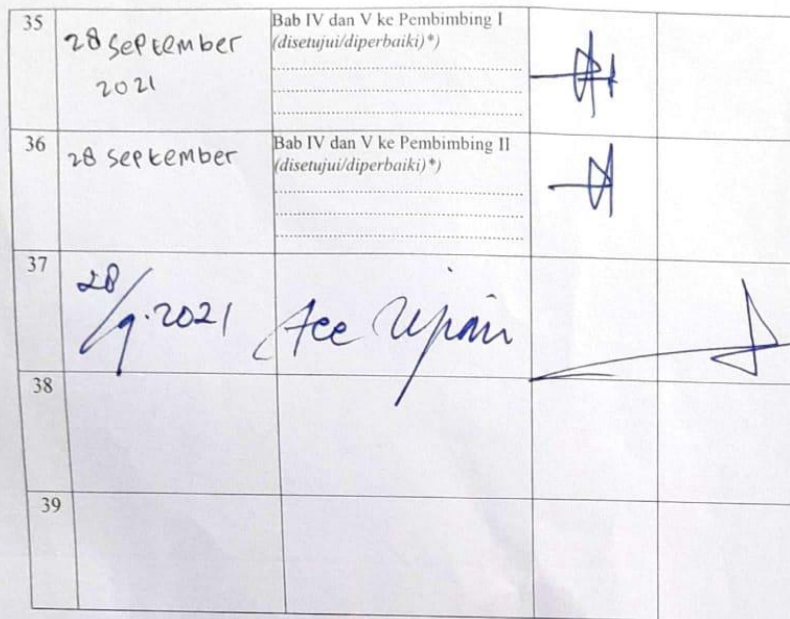 35
28 September
2021
Bab IV dan V ke Pembimbing I
(disetujui/diperbaiki)*)
36
28 September
Bab IV dan V ke Pembimbing II
(disetujui/diperbaiki)*)
37
28/9.2021
Acc Ujian
38
39